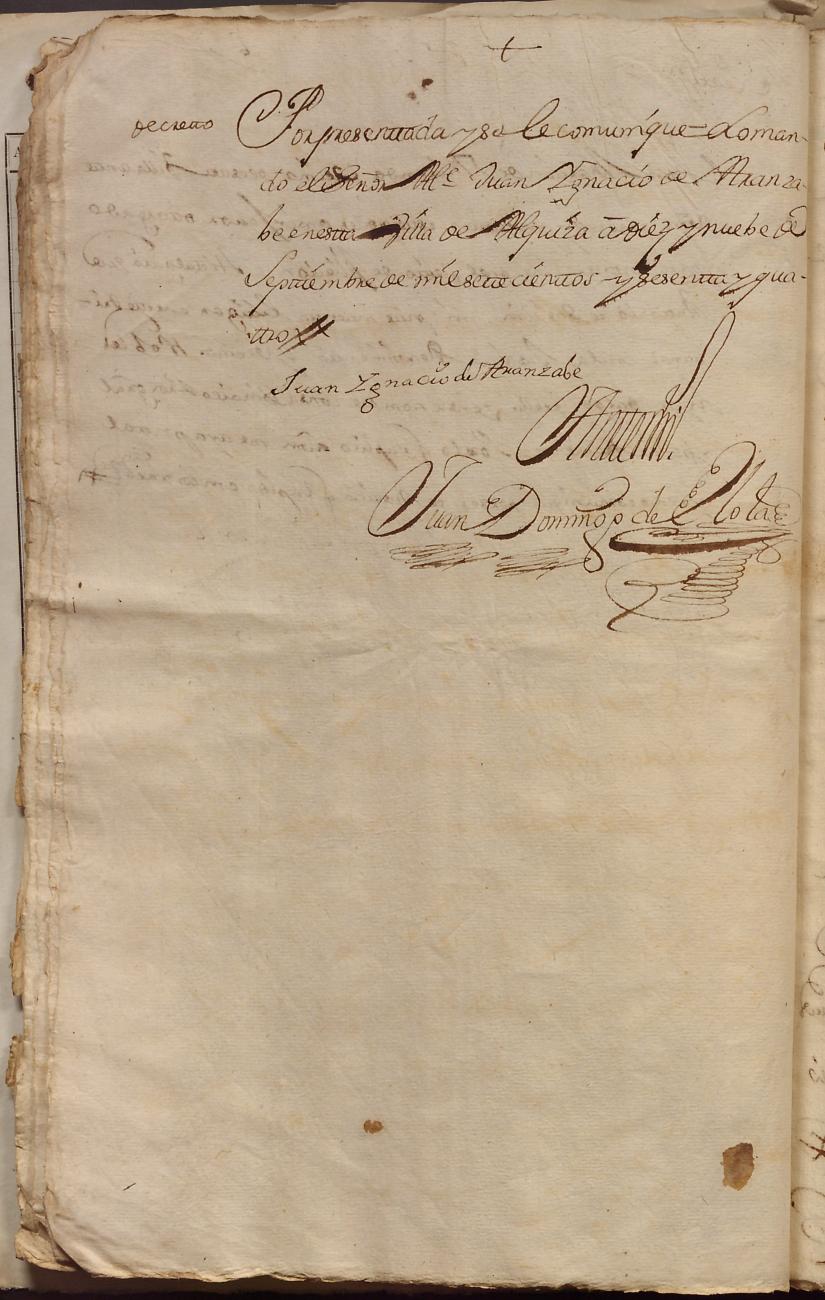 +
decretto Por presenttada y se le comuníque = Lo man-
do el Señor Al.e Juan Ygnacio de Aranza-
be en estta Villa de Alquiza â diez y nuebe de
Septtiembre de mil sette cienttos y sesentta y qua-
ttro
Juan Ygnacio de Aranzabe
Antemi
Juan Domingo de